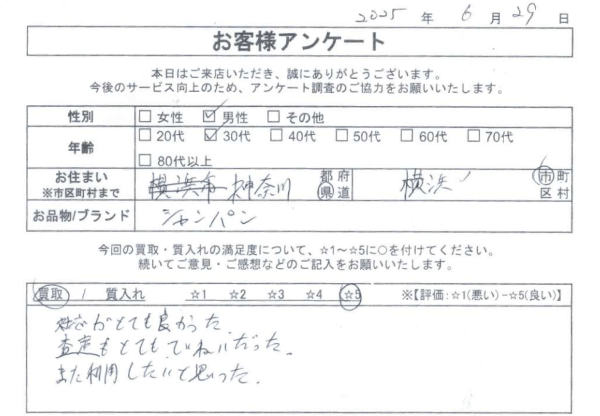 2025 年 6 月 29 日
お客様アンケート
本日はご来店いただき、誠にありがとうございます。
今後のサービス向上のため、アンケート調査のご協力をお願いいたします。
性別 □ 女性 ☑ 男性 □ その他
年齢 □ 20代 ☑ 30代 □ 40代 □ 50代 □ 60代 □ 70代
□ 80代以上
お住まい 横浜市 神奈川 都 府 横浜 市 町
※市区町村まで 県 道 区 村
お品物/ブランド シャンパン
今回の買取・質入れの満足度について、☆1～☆5に○を付けてください。
続いてご意見・ご感想などのご記入をお願いいたします。
買取 / 質入れ ☆1 ☆2 ☆3 ☆4 ☆5 ※【評価:☆1(悪い)－☆5(良い)】
がとても良かった.
査定もとてもていねいだった.
また利用したいと思った.